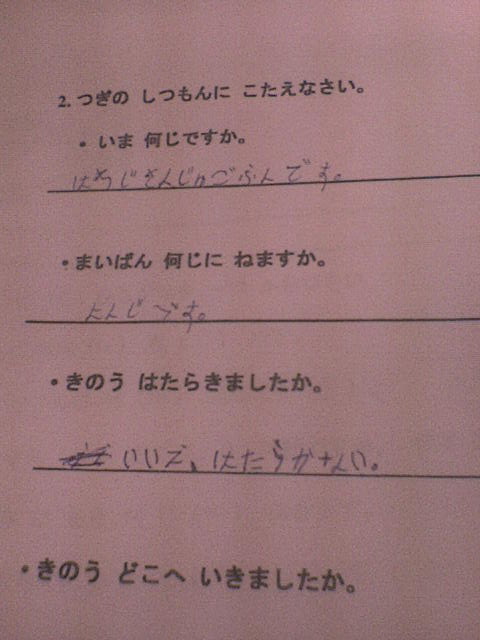 2. つぎの しつもんに こたえなさい。
・いま 何じですか。
はちじさんじゅごふんです。
・まいばん 何じに ねますか。
です。
・きのう はたらきましたか。
いいえ、はたらかない。
・きのう どこへ いきましたか。